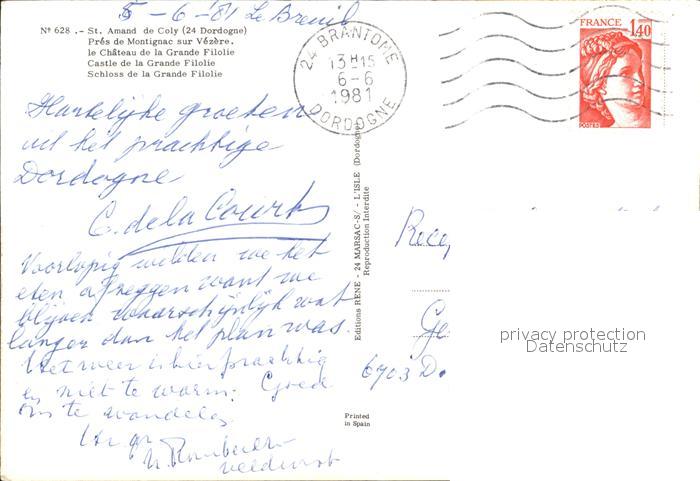 5-6-'81 Le Breuil
Nº 628 .- St. Amand de Coly (24 Dordogne)
Prés de Montignac sur Vézère.
le Château de la Grande Filolie
Castle de la Grande Filolie
Schloss de la Grande Filolie
24 BRANTOME
13 H 15
6-6
1981
DORDOGNE
FRANCE
1,40
POSTES
Hartelijke groeten
uit het prachtige
Dordogne
C. de la Court
Voorlopig wilden we het
eten afzeggen want we
blijven waarschijnlijk wat
langer dan het plan was.
Het weer is hier prachtig
en niet te warm. Goed
om te wandelen
Editions RENE - 24 MARSAC-S/ - L'ISLE (Dordogne)
Reproduction Interdite
6703 D
privacy protection
Datenschutz
Printed
in Spain